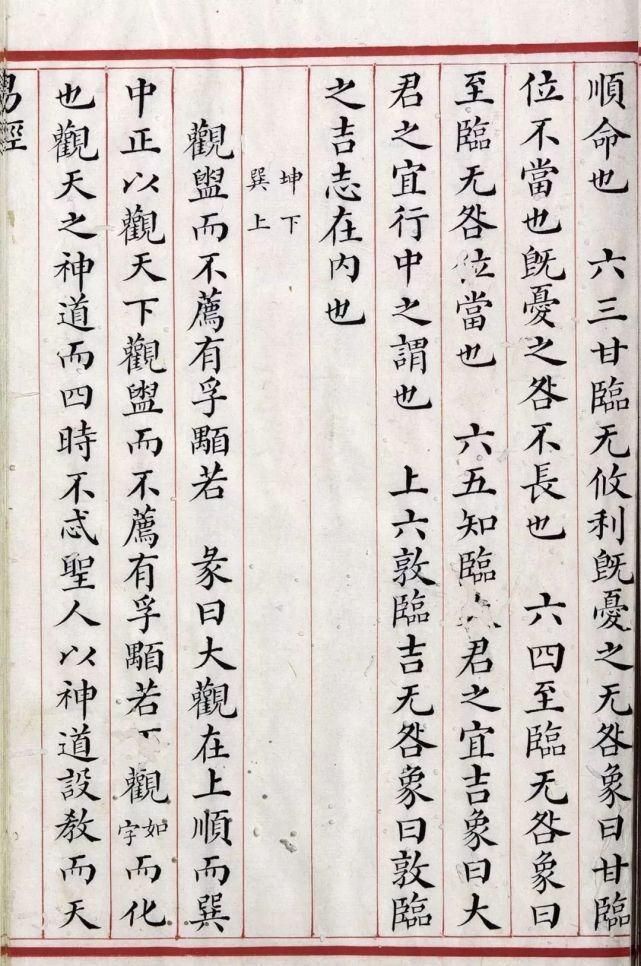 順命也　六三甘臨无攸利旣憂之无咎象曰甘臨
位不當也旣憂之咎不長也　六四至臨无咎象曰
至臨无咎位當也　六五知臨君之宜吉象曰大
君之宜行中之謂也　上六敦臨吉无咎象曰敦臨
之吉志在內也
坤下
巽上
觀盥而不薦有孚顒若　彖曰大觀在上順而巽
中正以觀天下觀盥而不薦有孚顒若下觀如字而化
也觀天之神道而四時不忒聖人以神道設教而天
易經